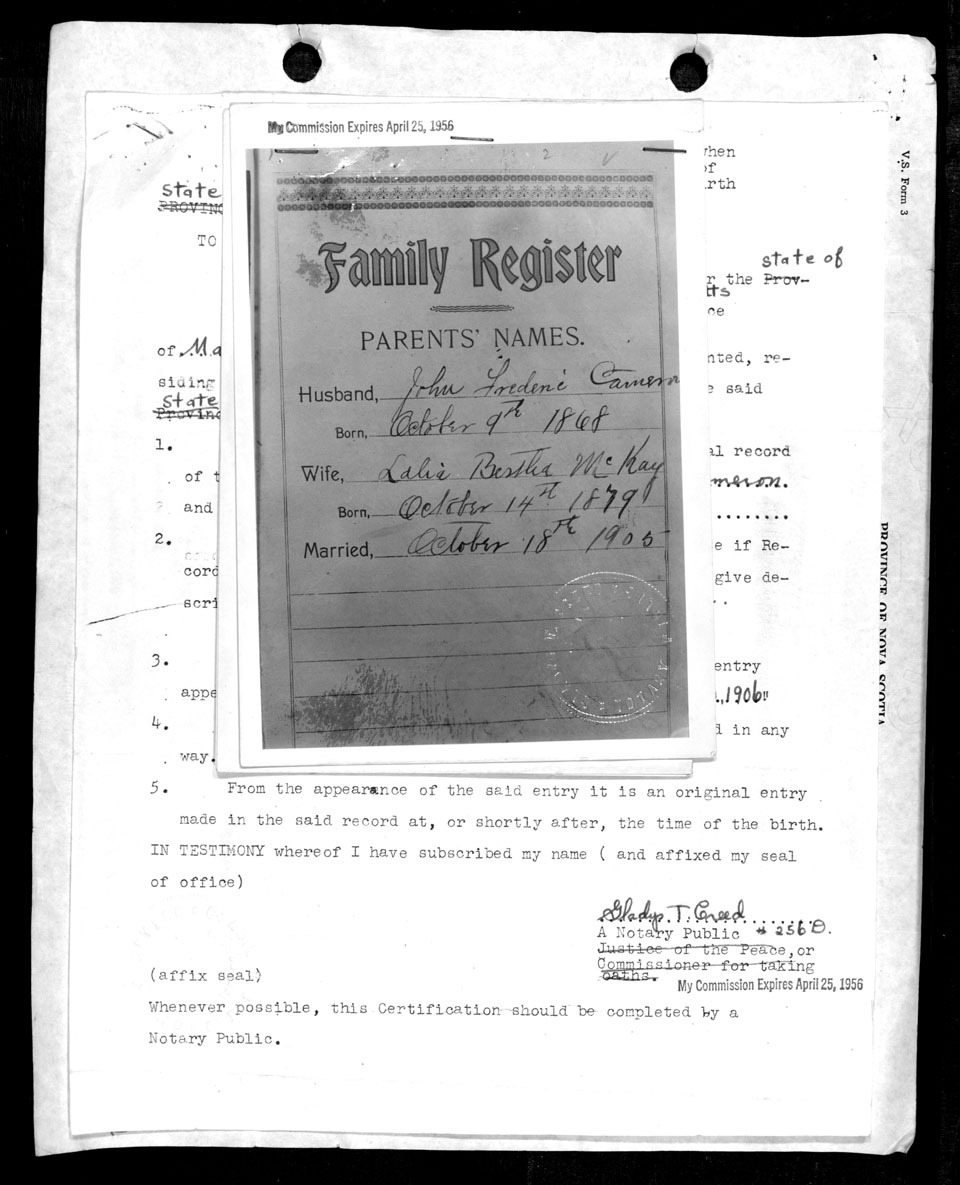 My Commission Expires April 25, 1956
Family Register
PARENTS' NAMES.
Husband, John Frederic Cameron
Born, October 9th 1868
Wife, Lalia Bertha McKay
Born, October 14th 1879
Married, October 18th 1905
when
of
State
PROVINC
TO
state of
r the Prov-
ce
of Ma
nted, re-
siding
e said
State
Provinc
1.
al record
of t
meron.
and
2.
e if Re-
cord
give de-
scri
3.
entry
appe
, 1906"
4.
d in any
way.
5. From the appearance of the said entry it is an original entry
made in the said record at, or shortly after, the time of the birth.
IN TESTIMONY whereof I have subscribed my name ( and affixed my seal
of office)
Gladys T. Creed
A Notary Public # 256 D.
Justice of the Peace, or
Commissioner for taking
oaths.
My Commission Expires April 25, 1956
(affix seal)
Whenever possible, this Certification should be completed by a
Notary Public.
V.S. Form 3
PROVINCE OF NOVA SCOTIA